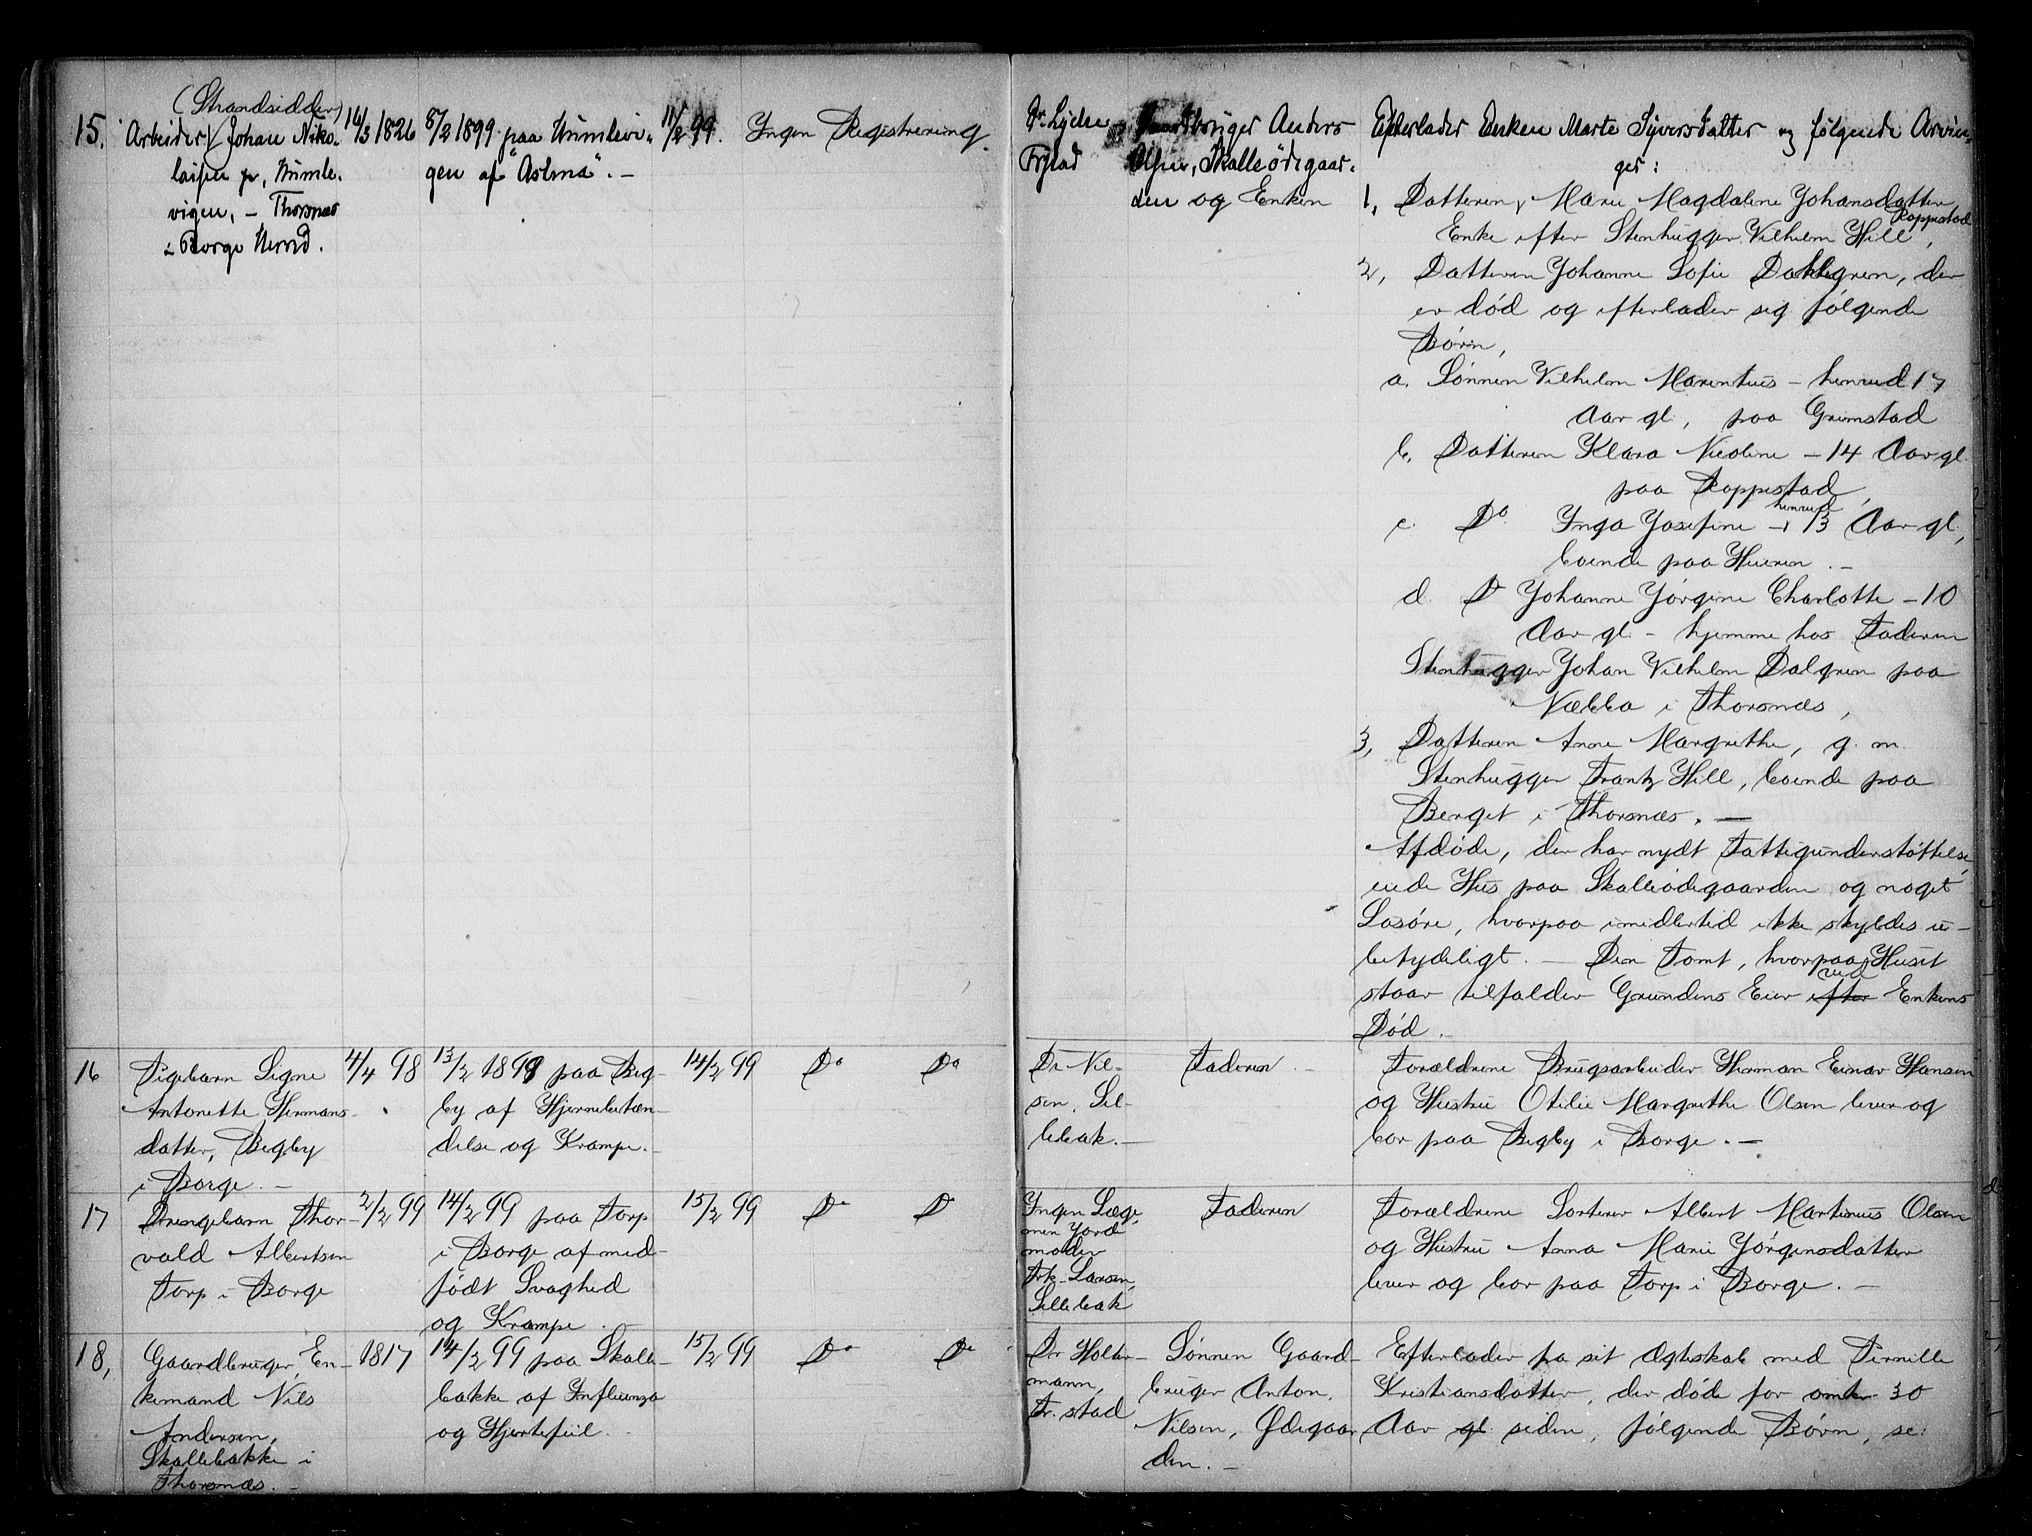 (Strandsidder)
15. Arbeider Johan Niko-
laisen fr. Humle-
vigen, - Thorsnæs
i Borge Herred.
16/3 1826
8/2 1899 paa Humlevi-
gen af "Astma". -
11/2 99.
Ingen Registrering.
Dr. Lyden
Frstad
Gaardbruger Anders
Olsen, Skalleødegaar-
den og Enken
Efterlader Enken Marte Syversdatter og følgende Arvin-
ger:
1, Datteren, Marie Magdalene Johansdatter,
Roppestad
Enke efter Stenhugger Vilhelm Hill,
2, Datteren Johanne Sofie Dahlgren, der
er død og efterlader sig følgende
Børn,
a. Sønnen Vilhelm Marentius - henved 17
Aar gl, paa Grimstad
b. Datteren Klara Nicoline - 14 Aar gl.
paa Roppestad,
henved
c. Do Inga Josefine - 13 Aar gl,
boende paa Hueren. -
d. Do Johanne Jørgine Charlotte - 10
Aar gl - hjemme hos Faderen
Stenhugger Johan Vilhelm Dalgren paa
Næbba i Thorsnæs,
3, Datteren Anne Margrethe, g. m.
Stenhugger Frantz Hill, boende paa
Berget i Thorsnæs. -
Afdøde, der har nydt Fattigunderstøttelse,
eiede Hus paa Skalleødegaarden og noget
Løsøre, hvorpaa imidlertid ikke skyldes u-
betydeligt. - Den Tomt, hvorpaa Huset
ved
staar tilfalder Grundens Eier efter Enkens
Død. -
16 Pigebarn Signe
Antonette Hermans-
datter, Begby
i Borge. -
4/4 98
13/2 1899 paa Beg-
by af Hjernebetæn-
delse og Krampe. -
14/2 99
Do Do
Dr Nil-
sen, Sel-
lebak. -
Faderen -
Forældrene Brugsarbeider Herman Einar Hansen
og Hustru Otilie Margrethe Olsen lever og
bor paa Begby i Borge. -
17 Drengebarn Thor-
vald Albertsen
Torp i Borge
2/2 99
14/2 99 paa Torp
i Borge af med-
født Svaghed
og Krampe. -
15/2 99
Do Do
Ingen Læge
men Jord
moder
Frk. Larsen,
Sellebak
Faderen
Forældrene Sorterer Albert Martinius Olsen
og Hustru Anna Marie Jørgensdatter
lever og bor paa Torp i Borge. -
18, Gaardbruger, En-
kemand Nils
Andersen,
Skallebakke i
Thorsnæs. -
1817
14/2 99 paa Skalle-
bakke af Influenza
og Hjertefeil. -
15/2 99
Do Do
Dr Holter-
mann,
Fr.stad
Sønnen Gaard-
bruger Anton
Nilsen, Ødegaar-
den. -
Efterlader fra sit Ægteskab med Pernille
Kristiansdatter, der døde for omkr 30
Aar gl. siden, følgende Børn, se: